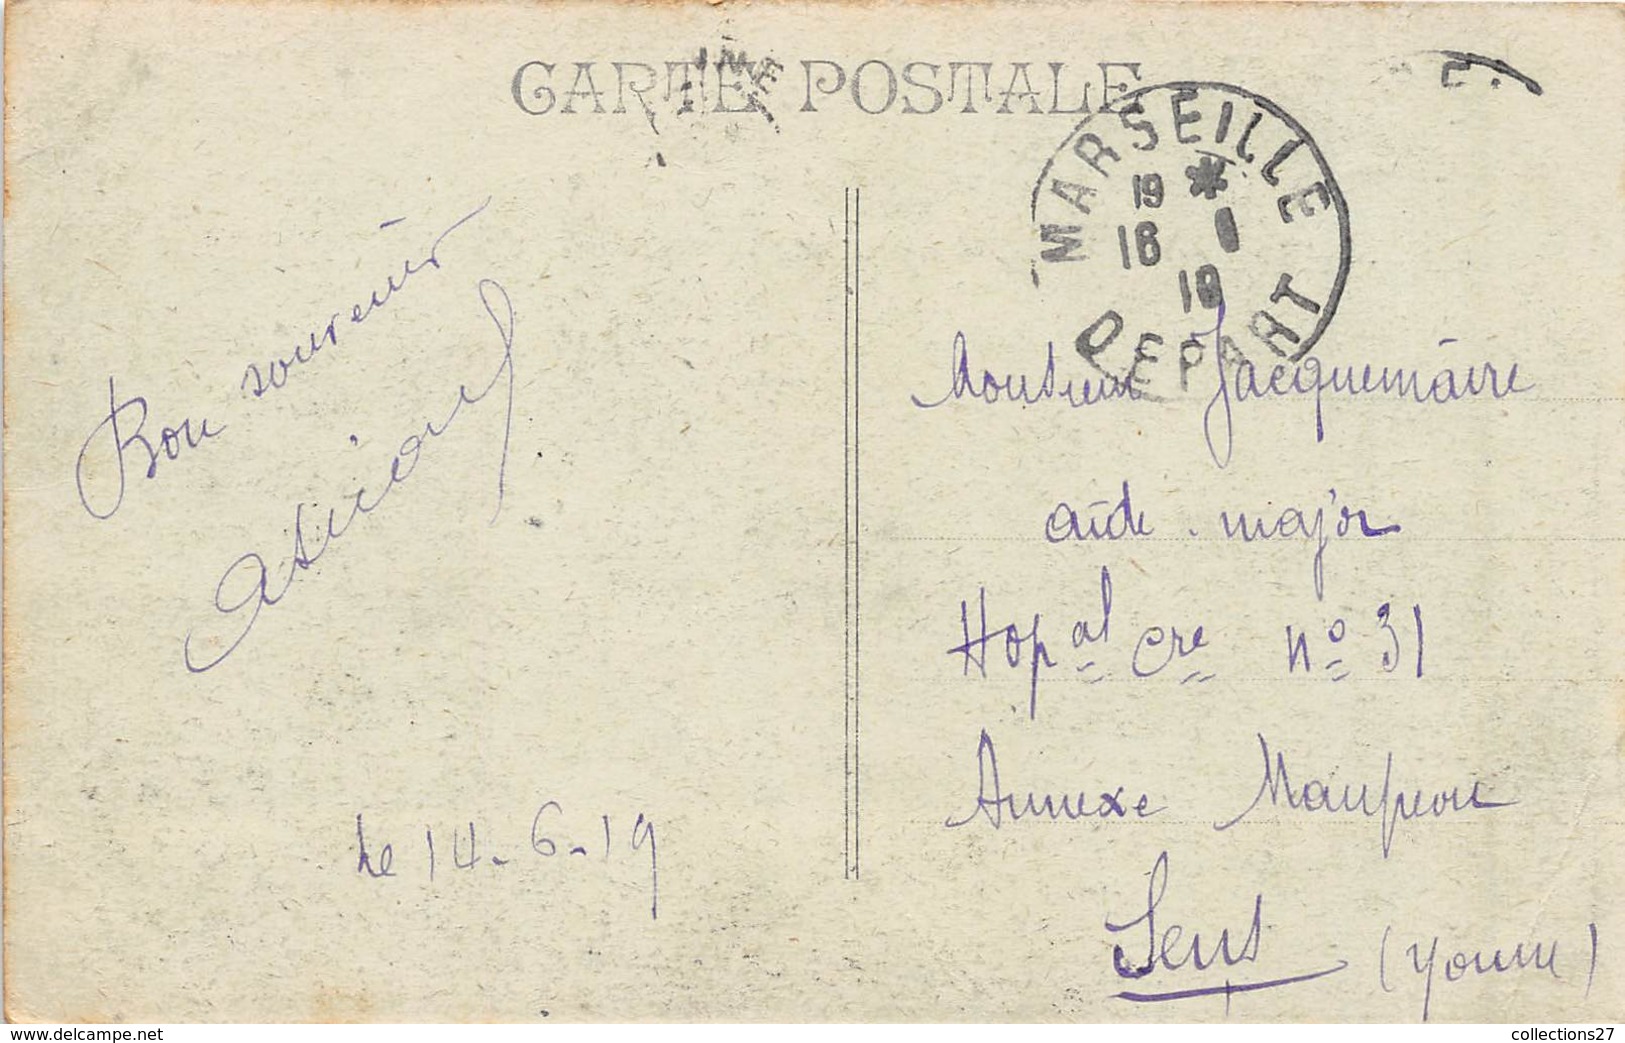 CARTE POSTALE
MARSEILLE
19 *
16
19
DEPART
Bon souvenir
le 14-6-19
Monsieur Jacquemaire
aide-major
Hopal cre no 31
Annexe Maupeou
Sens (Yonne)
www.delcampe.net
collections27